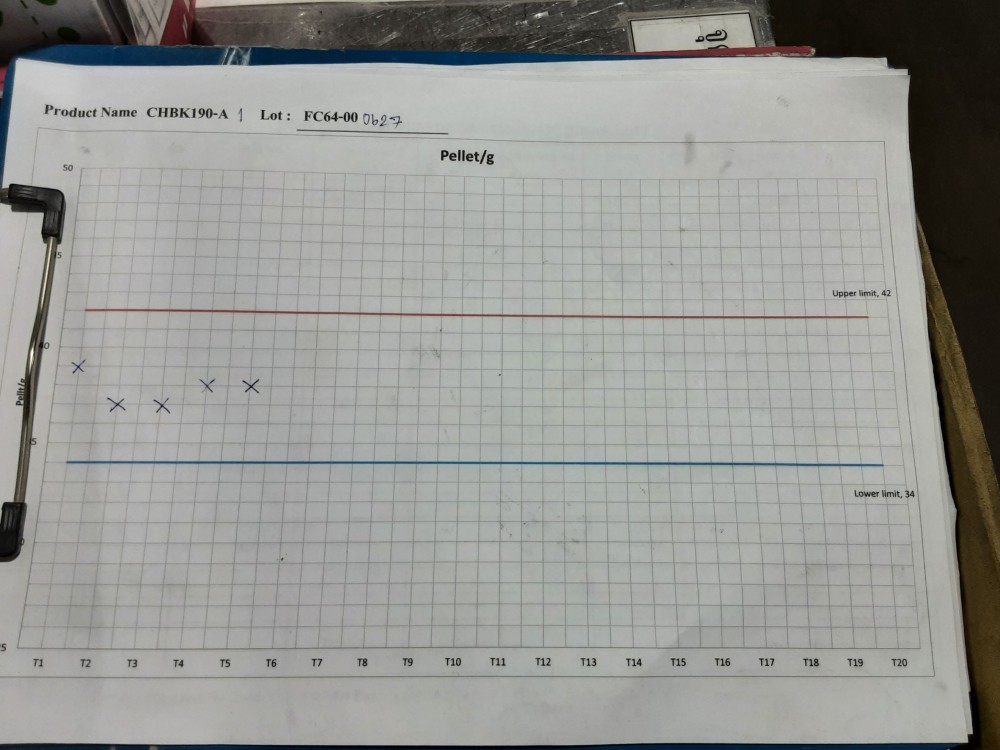 Product Name CHBK190-A 1 Lot : FC64-00 0627
Pellet/g
50
45
Upper limit, 42
40
Pellt/g
35
Lower limit, 34
25
T1 T2 T3 T4 T5 T6 T7 T8 T9 T10 T11 T12 T13 T14 T15 T16 T17 T18 T19 T20